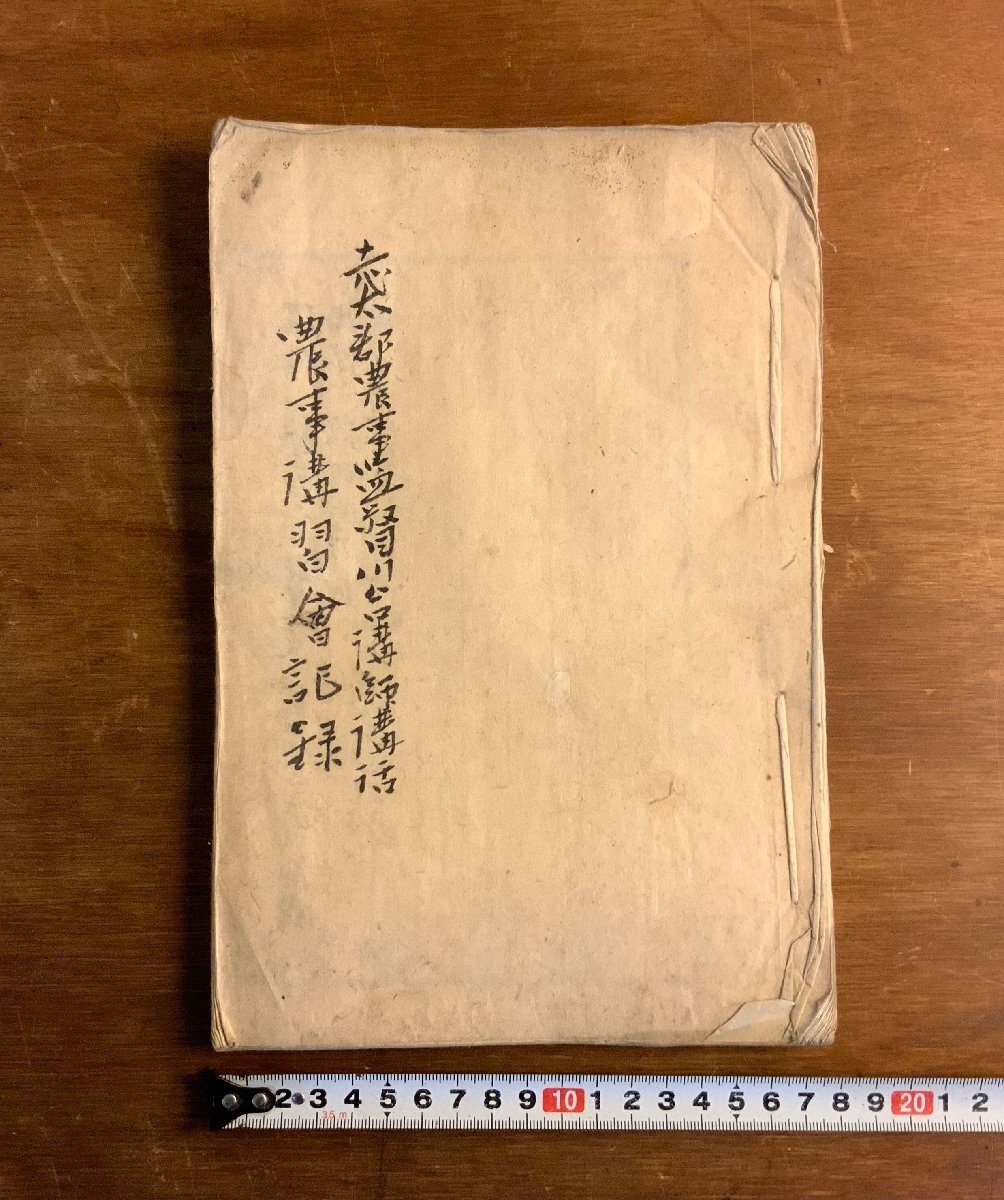 志太郡農事監督川合講師講話
農事講習會記録
2 3 4 5 6 7 8 9 10 1 2 3 4 5 6 7 8 9 20 1 2
3.5 m